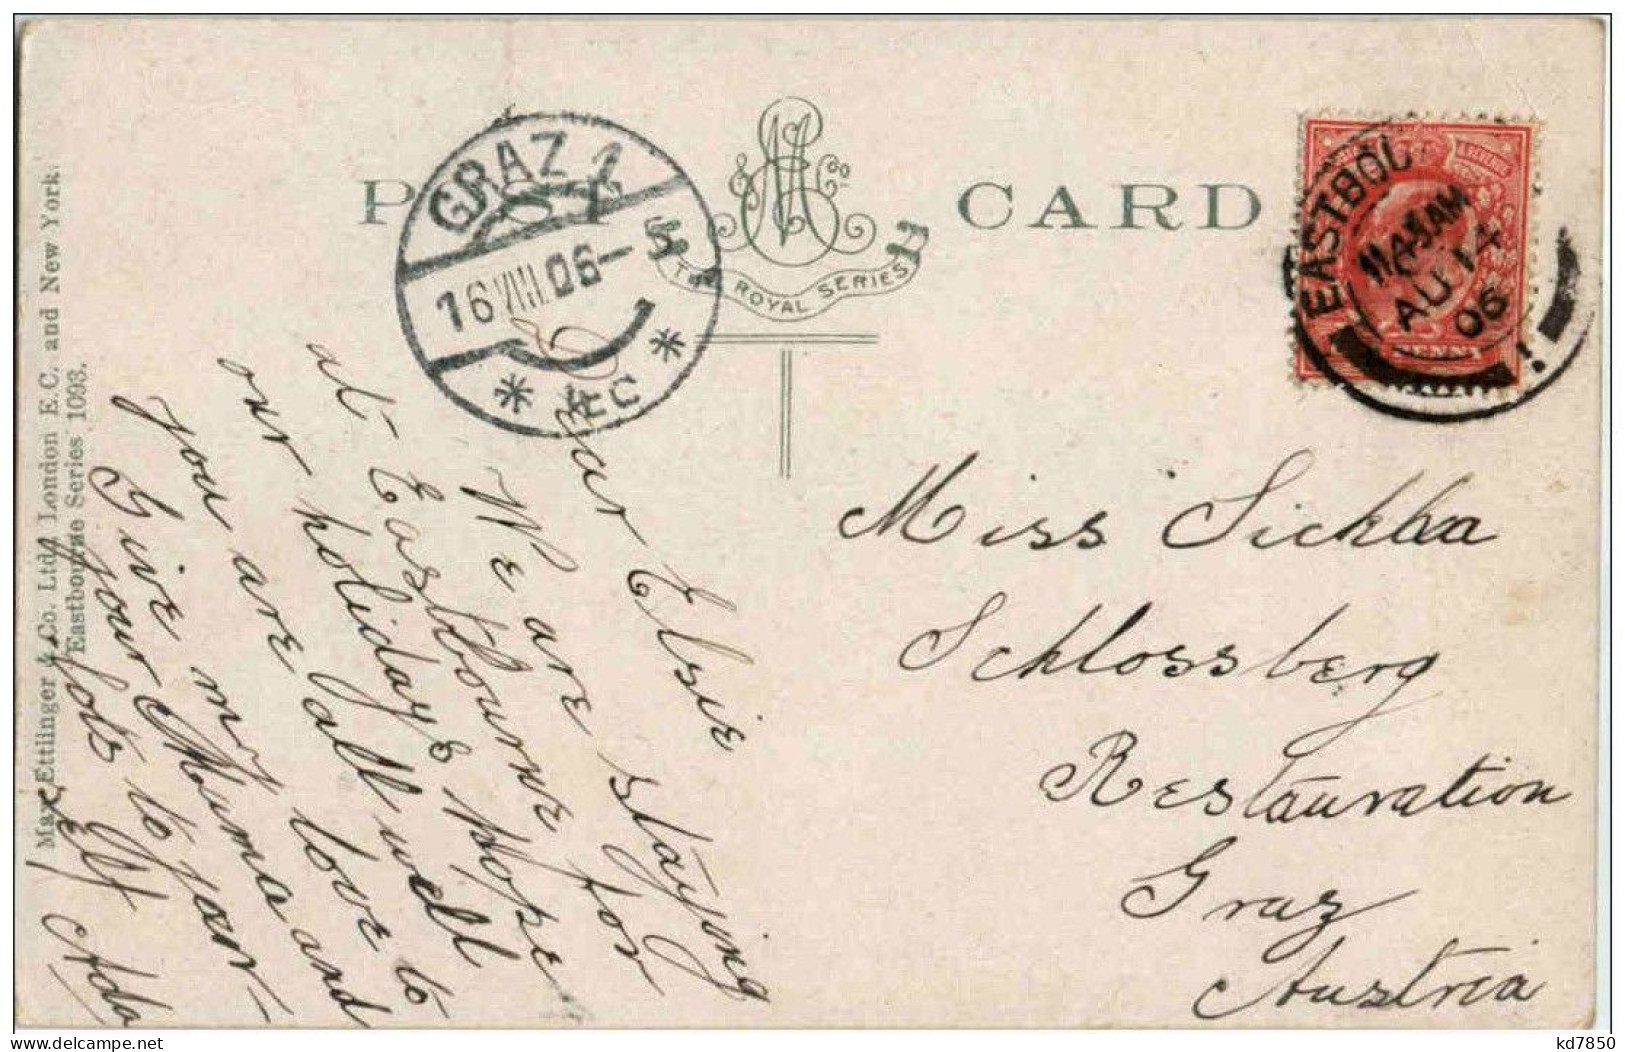 POST CARD
M E & Co
THE ROYAL SERIES
GRAZ 1
16 VIII 06 - 5
* REC *
EASTBOU
11 45 AM
AU 14
06
PENNY
Max Ettlinger & Co. Ltdd London E.C. and New York.
Eastbourne Series 1093.
Dear Elsie
We are staying
at Eastbourne for
our holidays hope
you are all well
Give my love to
your Mama and
lots to your-
self Ada
Miss Sickha
Schlossberg
Restauration
Graz
Austria
kd7850